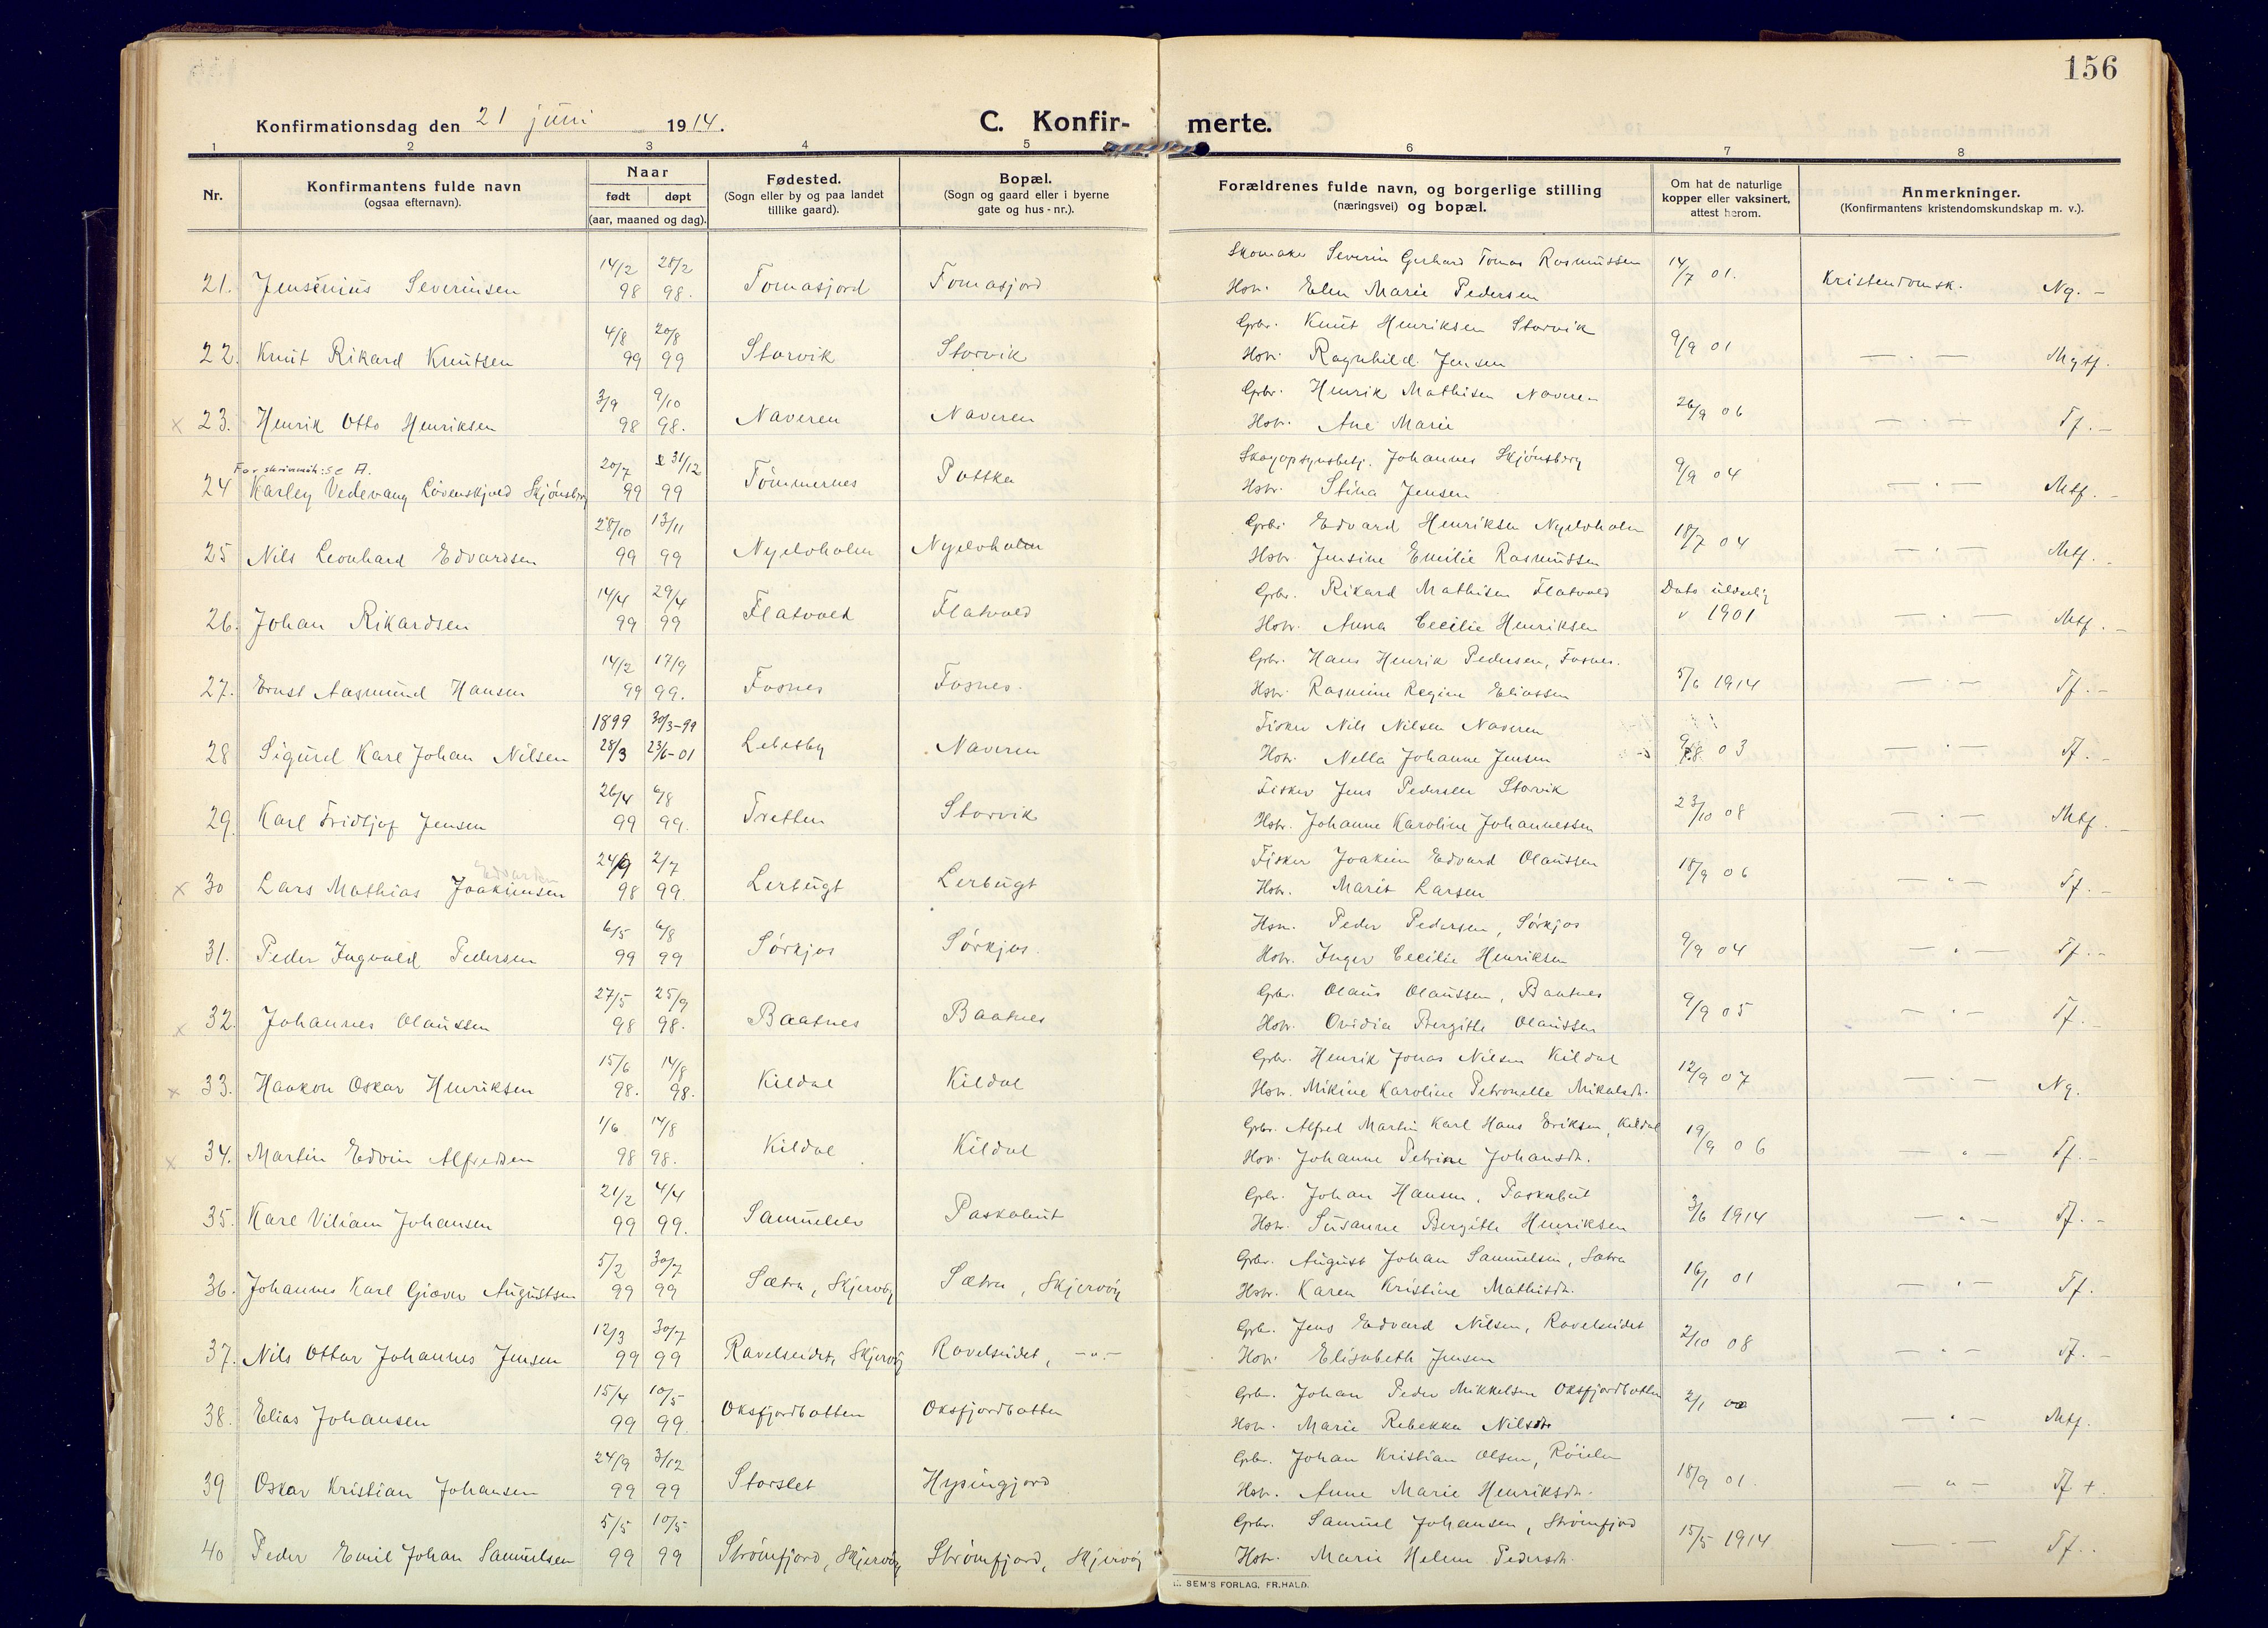 156
Konfirmationsdag den 21 juni 1914.
C. Konfirmerte.
1 2 3 4 5 6 7 8
Nr.
Konfirmantens fulde navn
(ogsaa efternavn).
Naar
født døpt
(aar, maaned og dag).
Fødested.
(Sogn eller by og paa landet
tillike gaard).
Bopæl.
(Sogn og gaard eller i byerne
gate og hus-nr.).
Forældrenes fulde navn, og borgerlige stilling
(næringsvei) og bopæl.
Om hat de naturlige
kopper eller vaksinert,
attest herom.
Anmerkninger.
(Konfirmantens kristendomskundskap m. v.).
14/2 28/2 Skomaker Severin Gerhard Tomas Rasmussen
21. Jensenius Severinsen 98 98. Tomasjord Tomasjord Hstr. Elen Marie Pedersen 14/7 01. Kristendomsk. Ng. -
4/8 20/8 Grbr. Knut Henriksen Storvik
22. Knut Rikard Knutsen 99 99 Storvik Storvik Hstr. Ragnhild Jensen 9/9 01 — . — Mgtf.
3/9 9/10 Grbr. Henrik Mathisen Naveren
x 23. Henrik Otto Henriksen 98 98. Naveren Naveren Hstr. Ane Marie 26/9 06 — . — Tf. -
20/7 31/12 Skogopsynsbetj. Johannes Skjønsberg
24 Karley Vedevang Løvenskjold Skjønsberg 99 99 Tømmernes Pottka Hstr. Stina Jensen 9/9 04 — . — Mtf. -
28/10 13/11 Grbr. Edvard Henriksen Nyelvholm
25 Nils Leonhard Edvardsen 99 99 Nyelvholm Nyelvholm Hstr. Jensine Emilie Rasmussen 18/7 04 — . — Mtf. -
14/4 29/4 Grbr. Rikard Mathisen Flatvold Dato
26. Johan Rikardsen 99 99 Flatvold Flatvold Hstr. Anna Cecilie Henriksen v 1901 — . — Mtf. -
14/2 17/9 Grbr. Hans Henrik Pedersen, Fosnes.
27. Ernst Aasmund Hansen 99 99. Fosnes Fosnes. Hstr. Rasmine Regine Eliassen 5/6 1914 — . — Tf. -
1899 30/3-99 Fisker Nils Nilsen Naveren
28 Sigurd Karl Johan Nilsen 28/3 23/6-01 Lebesby Naveren Hstr. Nella Johanne Jensen 03 — . — Tf. -
26/4 6/8 Fisker Jens Pedersen Storvik
29. Karl Fridtjof Jensen 99 99. Tretten Storvik Hstr. Johanne Karoline Johannessen 23/10 08 — . — Mtf. -
Edvardsen 24/9 2/7 Fisker Joakim Edvard Olaussen
x 30 Lars Mathias Joakimsen 98 99. Lerbugt Lerbugt Hstr. Marit Larsen 18/9 06 — " — Tf. -
6/5 6/8 Hsm. Peder Pedersen, Sørkjos
31. Peder Ingvald Pedersen 99 99 Sørkjos Sørkjos. Hstr. Inger Cecilie Henriksen 9/9 04 — " — Tf. -
27/5 25/9 Grbr. Olaus Olaussen, Baatnes
x 32. Johannes Olaussen 98 98. Baatnes Baatnes Hstr. Ovidia Bergitte Olaussen 9/9 05 — . — Tf. -
15/6 14/8 Grbr. Henrik Jonas Nilsen Kildal
x 33. Haakon Oskar Henriksen 98. 98. Kildal Kildal Hstr. Mikine Karoline Petronelle Mikalsdt. 12/9 07 — . — Ng.
1/6 14/8 Grbr. Alfred Martin Karl Hans Eriksen, Kildal
x 34. Martin Edvin Alfredsen 98 98. Kildal Kildal Hstr. Johanne Petrine Johansdt. 19/9 06 — " — Tf. -
21/2 4/4 Grbr. Johan Hansen, Paskabut
35. Karl Viliam Johansen 99 99. Samuelelv Paskabut Hstr. Susanne Bergitte Henriksen 3/6 1914 — " — Tf. -
5/2 30/7 Grbr. August Johan Samuelsen, Sætra
36. Johannes Karl Giæver Augustsen 99 99 Sætra, Skjervøy Sætra, Skjervøy Hstr. Karen Kristine Mathisdt. 16/1 01 — . — Tf.
12/3 30/7 Grbr. Jens Edvard Nilsen, Ravelseidet
37. Nils Ottar Johannes Jensen 99 99 Ravelseidet, Skjervøy Ravelseidet, -"- Hstr. Elisabeth Jensen 2/10 08 — " — Tf. -
15/4 10/5 Grbr. Johan Peder Mikkelsen Oksfjordbotten
38. Elias Johansen 99 99. Oksfjordbotten Oksfjordbotten Hstr. Marie Rebekka Nilsdt. 2/1 — " — Mtf.
24/9 3/12 Grbr. Johan Kristian Olsen, Røielen
39 Oskar Kristian Johansen 99 99 Storslet Hysingjord Hstr. Anne Marie Henriksdt. 18/9 01. — " — Tf +.
5/5 10/5 Grbr. Samuel Johansen, Strømfjord
40 Peder Emil Johan Samuelsen 99 99 Strømfjord, Skjervøy Strømfjord, Skjervøy Hstr. Marie Helene Pedersdt. 15/5 1914 — . — Tf. .
SEM'S FORLAG, FR.HALD.